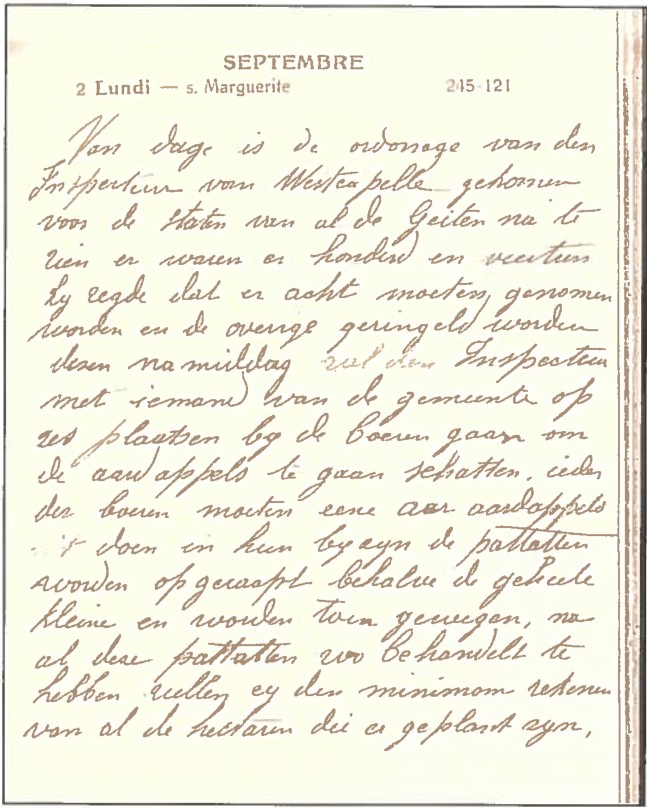 SEPTEMBRE
2 Lundi — s. Marguerite 245-121
Van dage is de ordonage van den
Inspecteur vom Westcapelle gekomen
voor de staten van al de Geiten na te
zien er waren er honderd en veertien
Zy zegde dat er acht moeten genomen
worden en de overige geringeld worden
dezen namiddag zal den Inspecteur
met iemand van de gemeente op
zes plaatsen by de boeren gaan om
de aardappels te gaan schatten. ieder
der boeren moeten eene aar aardappels
uit doen en hun byzyn de pattatten
worden opgeraapt behalve de geheele
kleine en worden toen gewegen, na
al deze pattatten zoo behandelt te
hebben zullen zy den minimom rekenen
van al de hectaren die er geplant zyn,